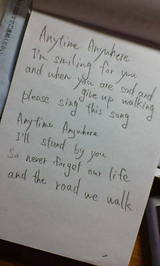 Anytime Anywhere
I'm smiling for you
and when you are sad and
give up walking
please sing this song
Anytime Anywhere
I'll stand by you
so never forget our life
and the road we walk